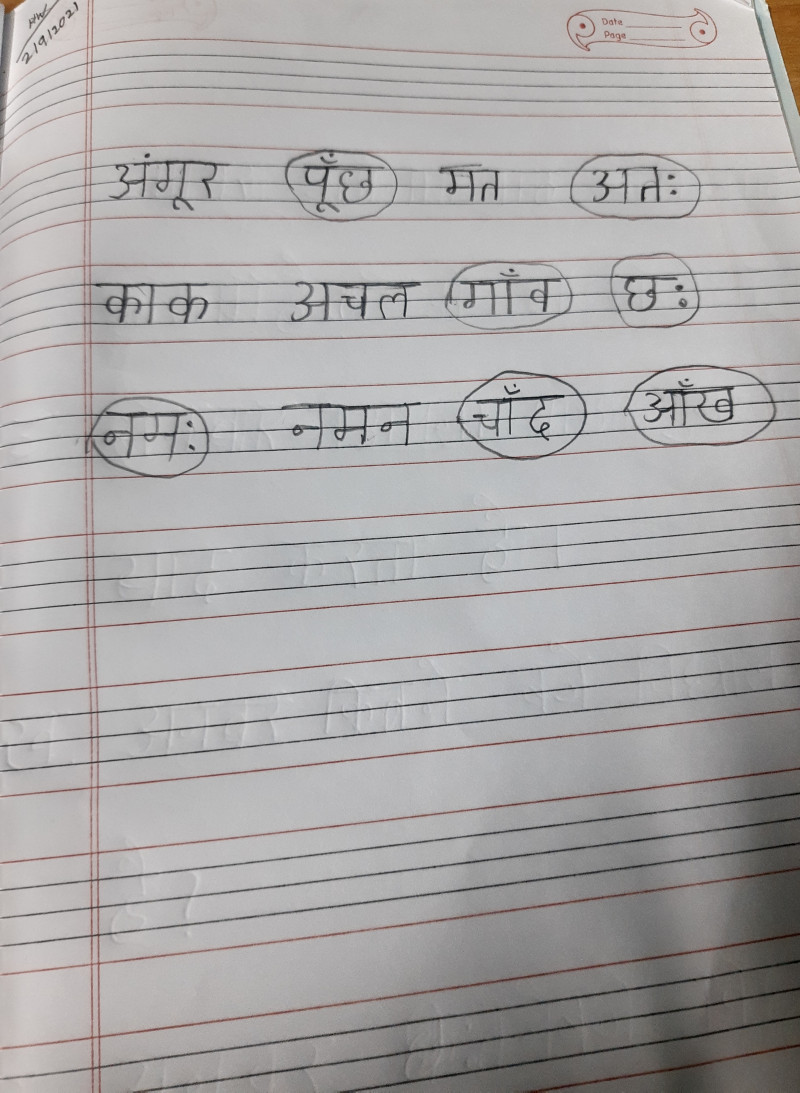 2/9/2021
Date
Page
अंगूर पूँछ मत अतः
काक अचल गाँव छः
नमः नमन चाँद आँख